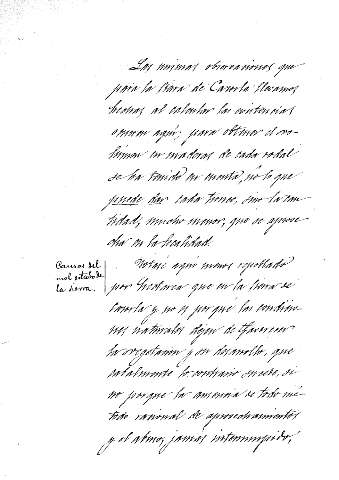 Las mismas observaciones que
para la Sierra de Cazorla llevamos
hechas al calcular las existencias
aquí; para obtener el vo-
lúmen en maderas de cada rodal
se ha tenido en cuenta, no lo que
puede dar cada tronco, sino la can-
tidad, mucho menor, que se aprove-
cha en la localidad.
Causas del
mal estado de
la sierra.
Vése aquí menos repoblado
por hectarea que en la Sierra de
Cazorla y no es porque las condicio-
nes naturales dejen de favorecer
la vegetacion y su desarrollo, que
cabalmente lo contrario sucede, si
no porque la ausencia de todo mé-
todo racional de aprovechamientos
y el abuso, jamas interrumpido,